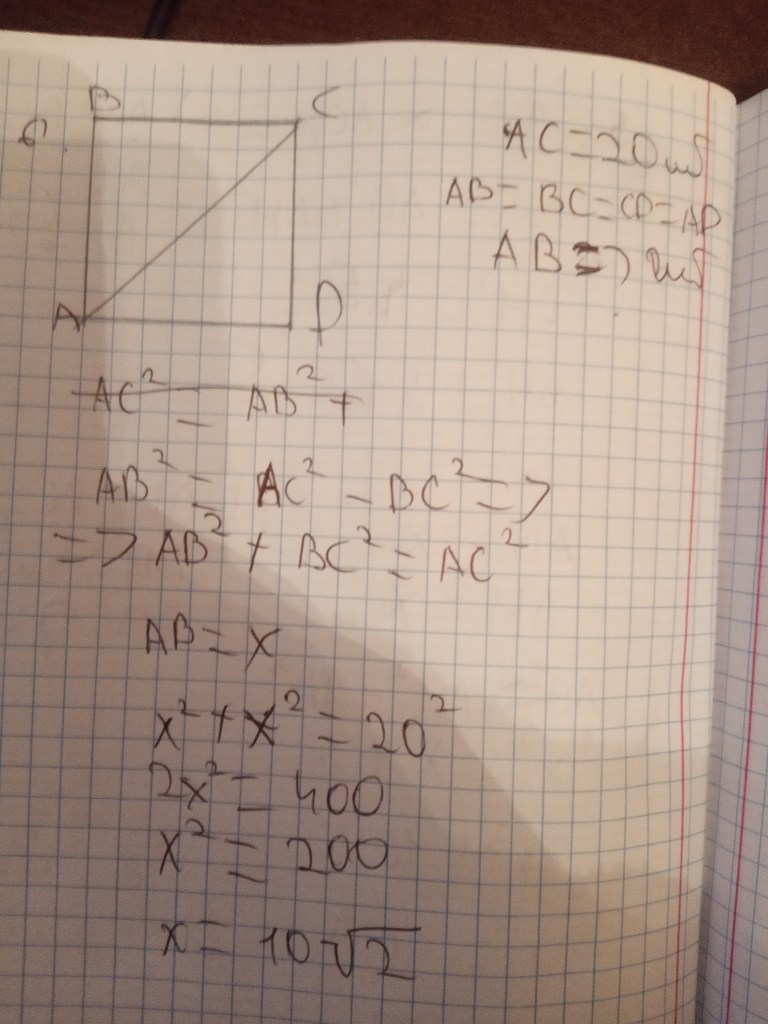 B C
A D
AC = 20
AB = BC = CD = AD
AB = ?
AC² = AB² +
AB² = AC² - BC² =>
=> AB² + BC² = AC²
AB = x
x² + x² = 20²
2x² = 400
x² = 200
x = 10√2